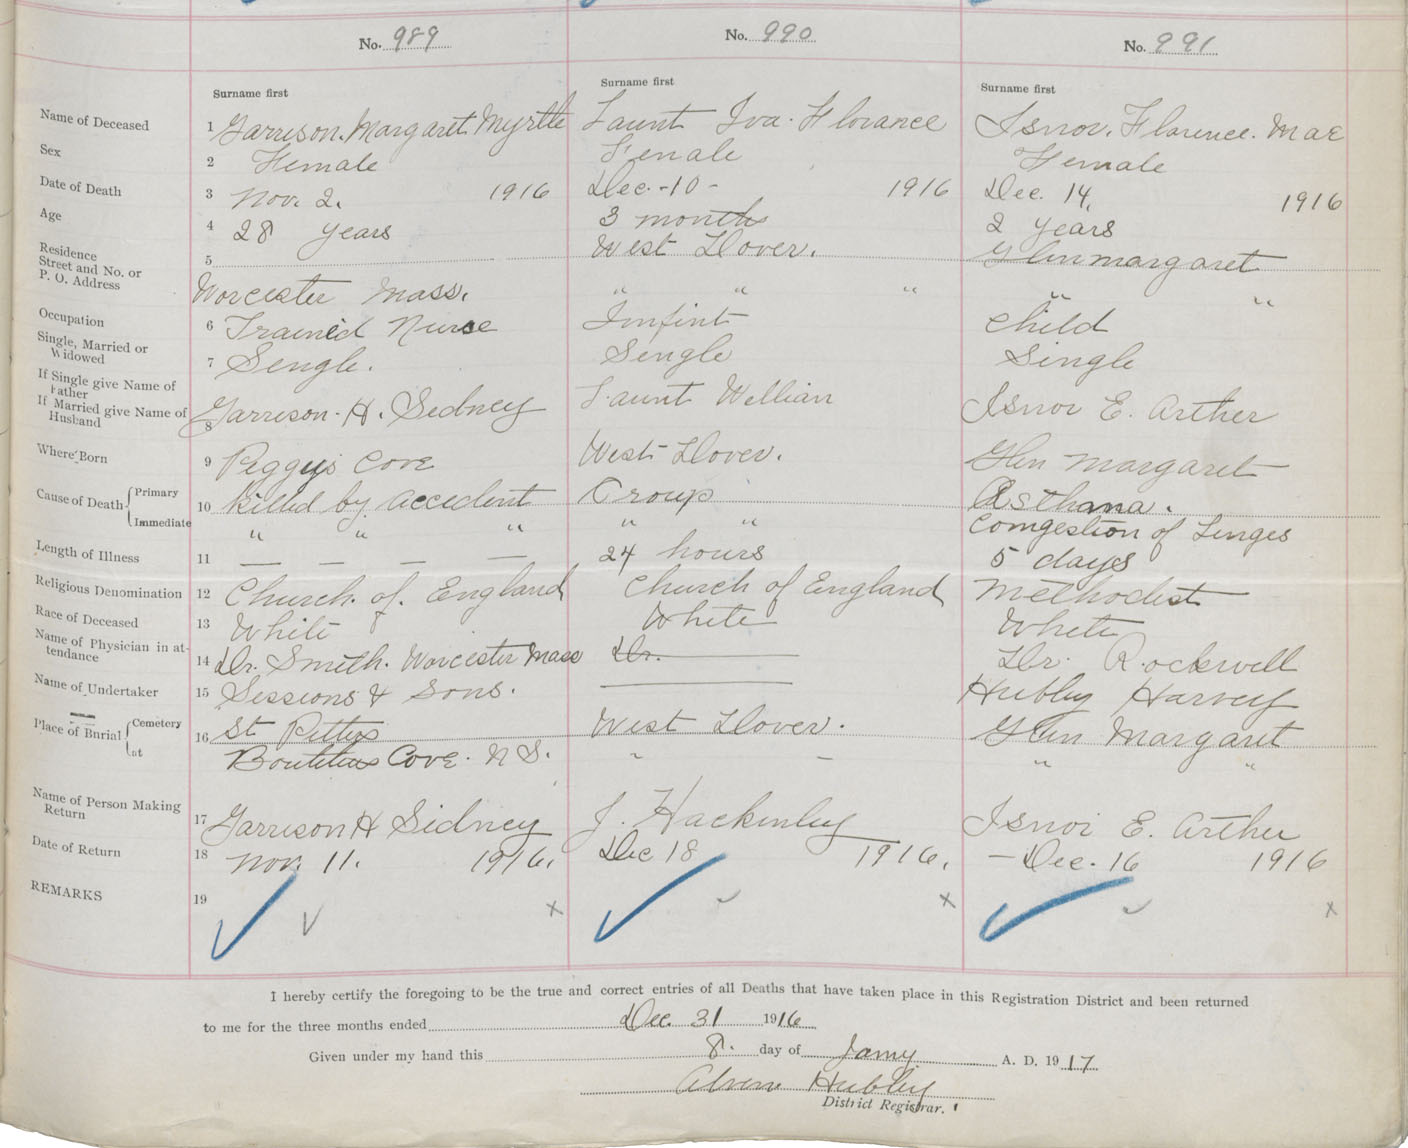 No. 989 No. 990 No. 991
Surname first Surname first Surname first
Name of Deceased 1 Garrison. Margaret Myrtle Faunt Iva. Florance Isnor. Florence. Mae
Sex 2 Female Female Female
Date of Death 3 Nov. 2. 1916 Dec. -10- 1916 Dec. 14. 1916
Age 4 28 years 3 month 2 years
Residence 5 West Dover. Glenmargaret
Street and No. or
P. O. Address Worcester Mass. " " " " "
Occupation 6 Trained Nurse Infint Child
Single, Married or
Widowed 7 Sengle. Sengle Single
If Single give Name of
Father
If Married give Name of
Husband 8 Garrison. H. Sedney Faunt Wellian Isnor E. Arther
Where Born 9 Peggys Cove West Dover. Glen Margaret
Cause of Death Primary 10 Killed by accedent Croup Asthama.
Immediate " " " " " Comgestion of Lunges
Length of Illness 11 — — — — 24 hours 5 days
Religious Denomination 12 Church. of. England Church of England Methodest
Race of Deceased 13 White White White
Name of Physician in at-
tendance 14 Dr. Smith. Worcester Mass Dr. Dr. Rockwell
Name of Undertaker 15 Sessions & Sons. — Hubley Harvey
Place of Burial Cemetery 16 St Petters West Dover. Glen Margaret
Lot Boutiliers Cove. N S. " " " "
Name of Person Making
Return 17 Garrison H Sidney J. Hackenley Isnor E. Arther
Date of Return 18 Nov. 11. 1916. Dec 18 1916. — Dec. 16 1916
REMARKS 19 x x x
I hereby certify the foregoing to be the true and correct entries of all Deaths that have taken place in this Registration District and been returned
to me for the three months ended Dec. 31 1916
Given under my hand this 8. day of Jany A. D. 1917
Hubley
District Registrar.